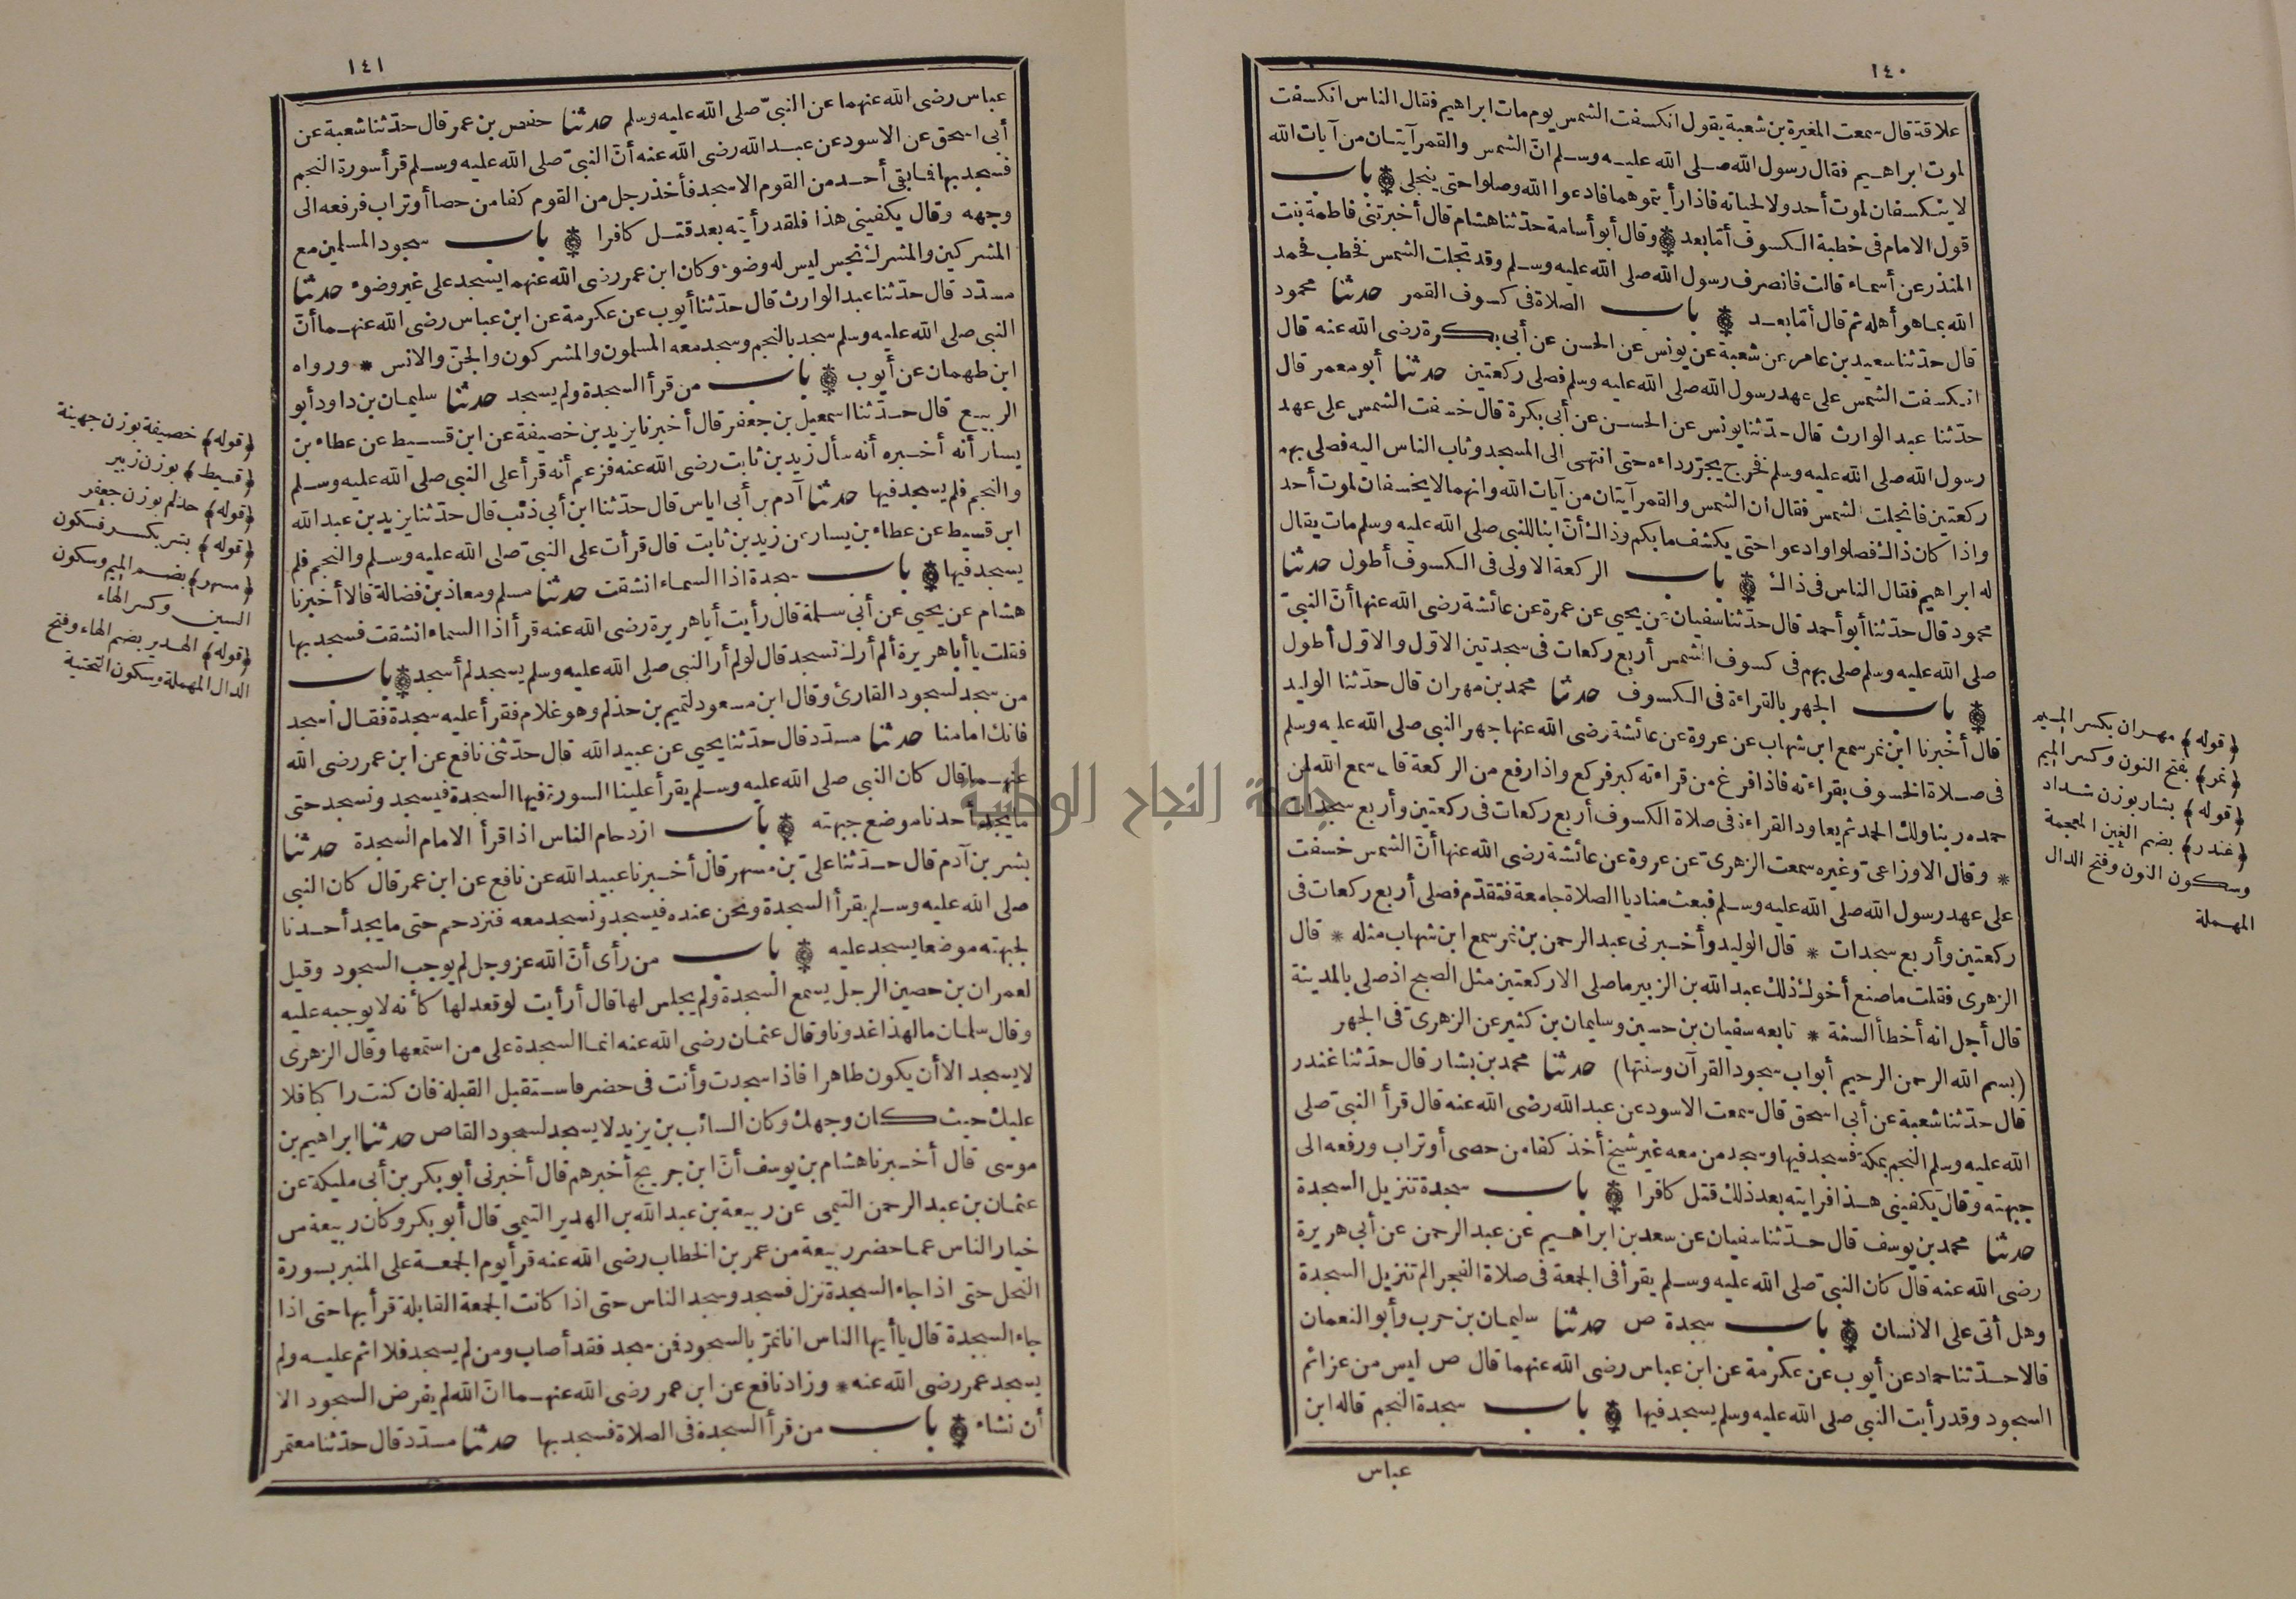 ١٤٠
علاقة قال سمعت المغيرة بن شعبة يقول انكسفت الشمس يوم مات ابراهيم فقال الناس انكسفت
لموت ابراهيم فقال رسول الله صلى الله عليه وسلم ان الشمس والقمر آيتان من آيات الله
لا ينكسفان لموت أحد ولا لحياته فاذا رأيتموهما فادعوا الله وصلوا حتى ينجلى باب
قول الامام فى خطبة الكسوف أمّا بعد وقال أبو أسامة حدّثنا هشام قال أخبرتنى فاطمة بنت
المنذر عن أسماء قالت فانصرف رسول الله صلى الله عليه وسلم وقد تجلت الشمس فخطب فحمد
الله بما هو أهله ثم قال أمّا بعد باب الصلاة فى كسوف القمر حدثنا محمود
قال حدّثنا سعيد بن عامر عن شعبة عن يونس عن الحسن عن أبى بكرة رضى الله عنه قال
انكسفت الشمس على عهد رسول الله صلى الله عليه وسلم فصلى ركعتين حدثنا أبو معمر قال
حدّثنا عبد الوارث قال حدّثنا يونس عن الحسن عن أبى بكرة قال خسفت الشمس على عهد
رسول الله صلى الله عليه وسلم فخرج يجرّ رداءه حتى انتهى الى المسجد وثاب الناس اليه فصلى بهم
ركعتين فانجلت الشمس فقال ان الشمس والقمر آيتان من آيات الله وانهما لا يخسفان لموت أحد
واذا كان ذاك فصلوا وادعوا حتى يكشف ما بكم وذاك أنّ ابنا للنبى صلى الله عليه وسلم مات يقال
له ابراهيم فقال الناس فى ذاك باب الركعة الاولى فى الكسوف أطول حدثنا
محمود قال حدّثنا أبو أحمد قال حدّثنا سفيان عن يحيى عن عمرة عن عائشة رضى الله عنها أنّ النبىّ
صلى الله عليه وسلم صلى بهم فى كسوف الشمس أربع ركعات فى سجدتين الاوّل والاوّل أطول
باب الجهر بالقراءة فى الكسوف حدثنا محمد بن مهران قال حدّثنا الوليد
قال أخبرنا ابن نمر سمع ابن شهاب عن عروة عن عائشة رضى الله عنها جهر النبى صلى الله عليه وسلم
فى صلاة الخسوف بقراءته فاذا فرغ من قراءته كبر فركع واذا رفع من الركعة قال سمع الله لمن
حمده ربنا ولك الحمد ثم يعاود القراءة فى صلاة الكسوف أربع ركعات فى ركعتين وأربع سجدات
* وقال الاوزاعىّ وغيره سمعت الزهرىّ عن عروة عن عائشة رضى الله عنها أنّ الشمس خسفت
على عهد رسول الله صلى الله عليه وسلم فبعث مناديا الصلاة جامعة فتقدّم فصلى أربع ركعات فى
ركعتين وأربع سجدات * قال الوليد وأخبرنى عبد الرحمن بن نمر سمع ابن شهاب مثله * قال
الزهرى فقلت ما صنع أخوك ذلك عبد الله بن الزبير ما صلى الا ركعتين مثل الصبح اذ صلى بالمدينة
قال أجل انه أخطأ السنة * تابعه سفيان بن حسين وسليمان بن كثير عن الزهرىّ فى الجهر
(بسم الله الرحمن الرحيم أبواب سجود القرآن وسنتها) حدثنا محمد بن بشار قال حدّثنا غندر
قال حدّثنا شعبة عن أبى اسحق قال سمعت الاسود عن عبد الله رضى الله عنه قال قرأ النبىّ صلى
الله عليه وسلم النجم بمكة فسجد فيها وسجد من معه غير شيخ أخذ كفا من حصى أو تراب ورفعه الى
جبهته وقال يكفينى هذا فرايته بعد ذلك قتل كافرا باب سجدة تنزيل السجدة
حدثنا محمد بن يوسف قال حدّثنا سفيان عن سعد بن ابراهيم عن عبد الرحمن عن أبى هريرة
رضى الله عنه قال كان النبىّ صلى الله عليه وسلم يقرأ فى الجمعة فى صلاة الفجر الم تنزيل السجدة
وهل أتى على الانسان باب سجدة ص حدثنا سليمان بن حرب وأبو النعمان
قالا حدّثنا حماد عن أيوب عن عكرمة عن ابن عباس رضى الله عنهما قال ص ليس من عزائم
السجود وقد رأيت النبى صلى الله عليه وسلم يسجد فيها باب سجدة النجم قاله ابن
عباس
﴿قوله﴾ مهران بكسر الميم
﴿نمر﴾ بفتح النون وكسر الميم
﴿قوله﴾ بشار بوزن شداد
﴿غندر﴾ بضم الغين المعجمة
وسكون النون وفتح الدال
المهملة
١٤١
عباس رضى الله عنهما عن النبىّ صلى الله عليه وسلم حدثنا حفص بن عمر قال حدّثنا شعبة عن
أبى اسحق عن الاسود عن عبد الله رضى الله عنه أنّ النبىّ صلى الله عليه وسلم قرأ سورة النجم
فسجد بها فما بقى أحد من القوم الا سجد فأخذ رجل من القوم كفا من حصا أو تراب فرفعه الى
وجهه وقال يكفينى هذا فلقد رأيته بعد قتل كافرا باب سجود المسلمين مع
المشركين والمشرك نجس ليس له وضوء وكان ابن عمر رضى الله عنهما يسجد على غير وضوء حدثنا
مسدّد قال حدّثنا عبد الوارث قال حدّثنا أيوب عن عكرمة عن ابن عباس رضى الله عنهما أنّ
النبى صلى الله عليه وسلم سجد بالنجم وسجد معه المسلمون والمشركون والجنّ والانس * ورواه
ابن طهمان عن أيوب باب من قرأ السجدة ولم يسجد حدثنا سليمان بن داود أبو
الربيع قال حدّثنا اسمعيل بن جعفر قال أخبرنا يزيد بن خصيفة عن ابن قسيط عن عطاء بن
يسار أنه أخبره أنه سأل زيد بن ثابت رضى الله عنه فزعم أنه قرأ على النبى صلى الله عليه وسلم
والنجم فلم يسجد فيها حدثنا آدم بن أبى اياس قال حدّثنا ابن أبى ذئب قال حدّثنا يزيد بن عبد الله
ابن قسيط عن عطاء بن يسار عن زيد بن ثابت قال قرأت على النبىّ صلى الله عليه وسلم والنجم فلم
يسجد فيها باب سجدة اذا السماء انشقت حدثنا مسلم ومعاذ بن فضالة قالا أخبرنا
هشام عن يحيى عن أبى سلمة قال رأيت أبا هريرة رضى الله عنه قرأ اذا السماء انشقت فسجد بها
فقلت يا أبا هريرة ألم أرك تسجد قال لو لم أر النبى صلى الله عليه وسلم يسجد لم أسجد باب
من سجد لسجود القارئ وقال ابن مسعود لتميم بن حذلم وهو غلام فقرأ عليه سجدة فقال أسجد
فانك امامنا حدثنا مسدّد قال حدّثنا يحيى عن عبيد الله قال حدّثنى نافع عن ابن عمر رضى الله
عنهما قال كان النبى صلى الله عليه وسلم يقرأ علينا السورة فيها السجدة فيسجد ونسجد حتى
ما يجد أحدنا موضع جبهته باب ازدحام الناس اذا قرأ الامام السجدة حدثنا
بشر بن آدم قال حدّثنا علىّ بن مسهر قال أخبرنا عبيد الله عن نافع عن ابن عمر قال كان النبى
صلى الله عليه وسلم يقرأ السجدة ونحن عنده فيسجد ونسجد معه فنزدحم حتى ما يجد أحدنا
لجبهته موضعا يسجد عليه باب من رأى أنّ الله عز وجل لم يوجب السجود وقيل
لعمران بن حصين الرجل يسمع السجدة ولم يجلس لها قال أرأيت لو قعد لها كأنه لا يوجبه عليه
وقال سلمان ما لهذا غدونا وقال عثمان رضى الله عنه انما السجدة على من استمعها وقال الزهرى
لا يسجد الا أن يكون طاهرا فاذا سجدت وأنت فى حضر فاستقبل القبلة فان كنت راكبا فلا
عليك حيث كان وجهك وكان السائب بن يزيد لا يسجد لسجود القاص حدثنا ابراهيم بن
موسى قال أخبرنا هشام بن يوسف أنّ ابن جريج أخبرهم قال أخبرنى أبو بكر بن أبى مليكة عن
عثمان بن عبد الرحمن التيمى عن ربيعة بن عبد الله بن الهدير التيمى قال أبو بكر وكان ربيعة من
خيار الناس عما حضر ربيعة من عمر بن الخطاب رضى الله عنه قرأ يوم الجمعة على المنبر بسورة
النحل حتى اذا جاء السجدة نزل فسجد وسجد الناس حتى اذا كانت الجمعة القابلة قرأ بها حتى اذا
جاء السجدة قال يا أيها الناس انا نمرّ بالسجود فمن سجد فقد أصاب ومن لم يسجد فلا اثم عليه ولم
يسجد عمر رضى الله عنه * وزاد نافع عن ابن عمر رضى الله عنهما انّ الله لم يفرض السجود الا
أن نشاء باب من قرأ السجدة فى الصلاة فسجد بها حدثنا مسدّد قال حدّثنا معتمر
﴿قوله﴾ خصيفة بوزن جهينة
﴿قسيط﴾ بوزن زبير
﴿قوله﴾ حذلم بوزن جعفر
﴿قوله﴾ بشر بكسر فسكون
﴿مسهر﴾ بضم الميم وسكون
السين وكسر الهاء
﴿قوله﴾ الهدير بضم الهاء وفتح
الدال المهملة وسكون التحتية
جامعة النجاح الوطنية